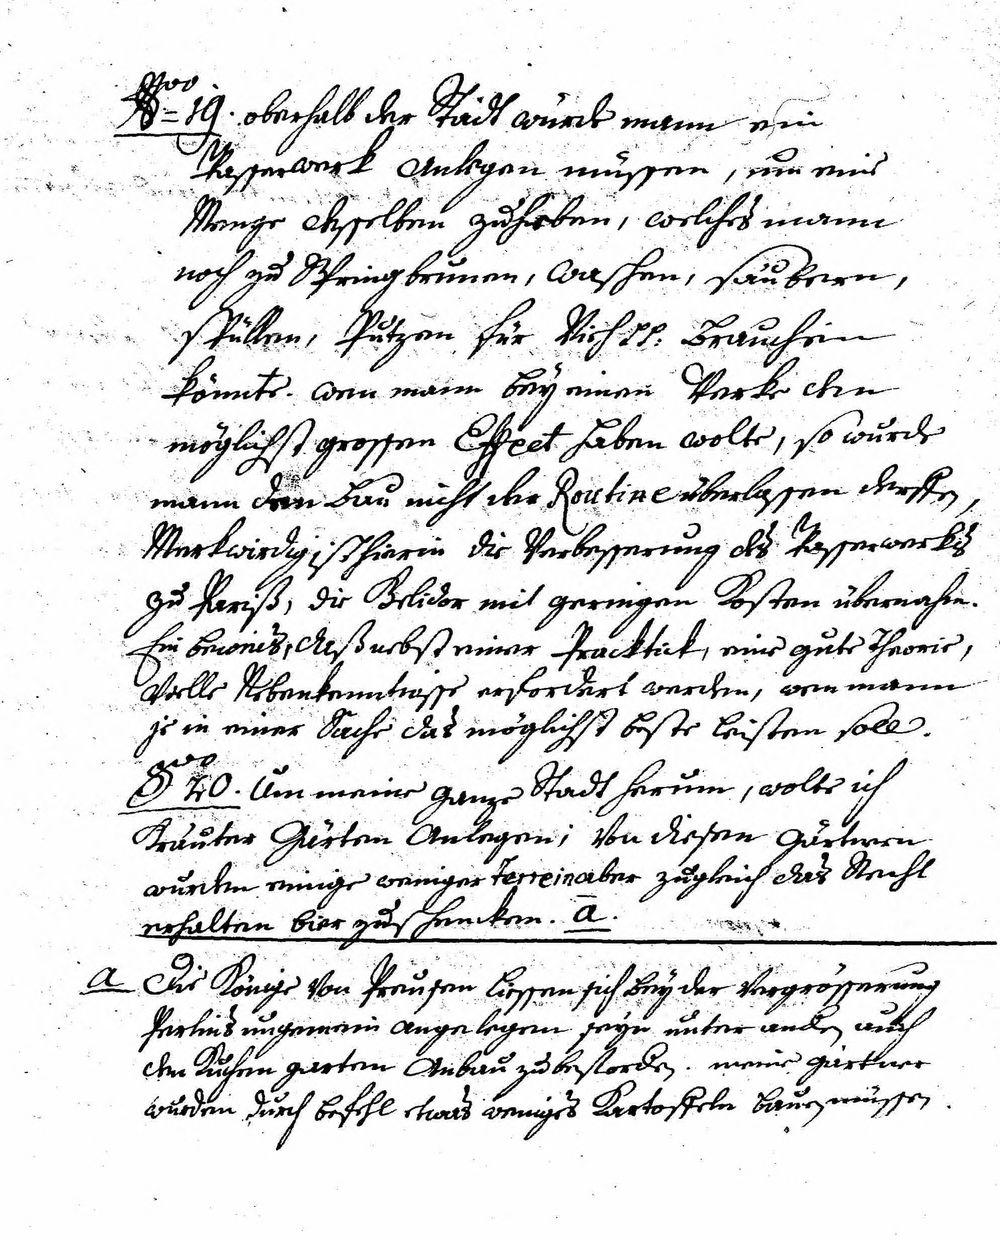 § 19. oberhalb der Stadt würde mann ein
Wasserwerk Anlegen müssen, um eine
Menge desselben zu haben, welches mann
noch zu Springbrunen, waschen, säubern,
spüllen, Putzen für Vieh pp: brauchen
könnte. wen mann bey einen Werke den
möglichst grossen Effect haben wolte, so wurde
mann den bau nicht der Routine überlassen derffen,
Merkwirdig ist hierin die Verbesserung des Wasserwerks
zu Pariß, die Belidor mit geringen Kosten übernahm.
Ein beweis, daß nebst einer Pracktick, eine gute Theorie,
Vielle Nebenkenntnisse erfordert werden, wen mann
je in einer Sache das möglichst beste leisten soll.
§ 20. Um meine ganze Stadt herum, wolte ich
Kräuter Gärten Anlegen; Von diesen Gärtnern
wurden einige weniger Terrein aber zugleich das Recht
erhalten bier zu schencken. a.
a Die Könige Von Preusen liessen sich bey der Vergrösserung
Berlins ungemein angelegen seyn unter anden auch
den Kuchen garten Anbau zu befördern. meine Gärtner
wurden durch befehl etwas weniges Kartoffeln bauen müssen.